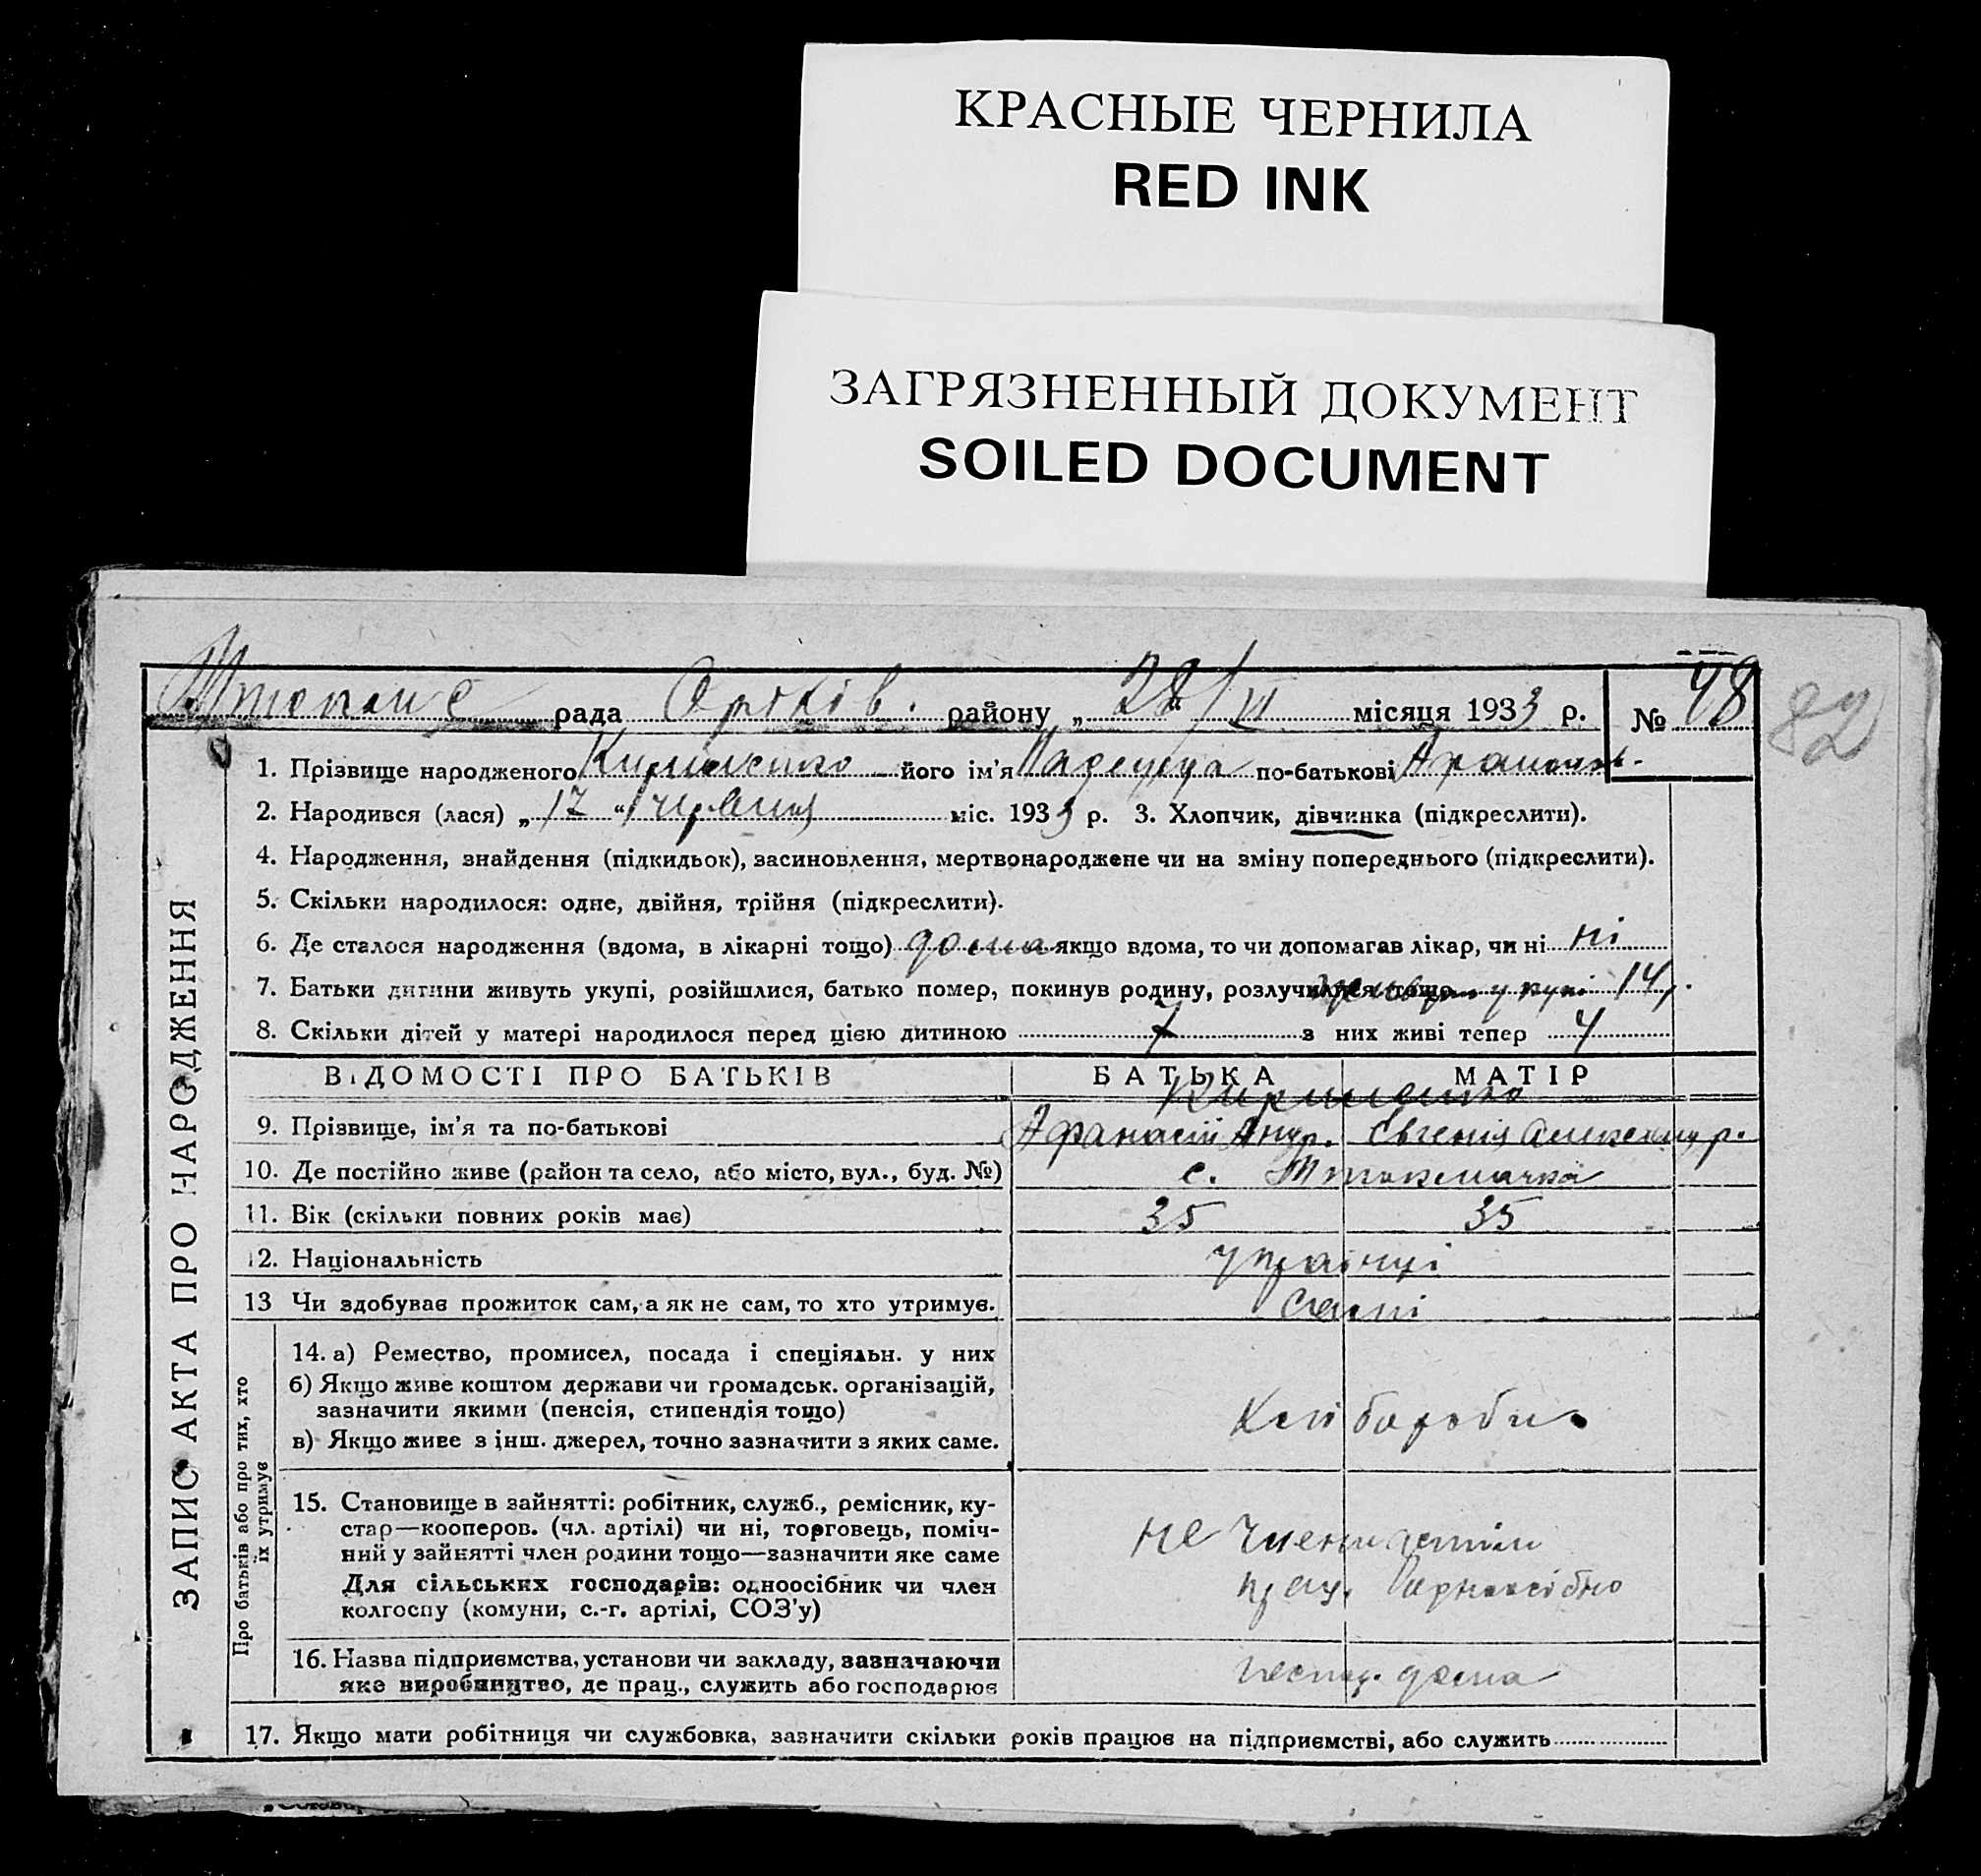 КРАСНЫЕ ЧЕРНИЛА
RED INK
ЗАГРЯЗНЕННЫЙ ДОКУМЕНТ
SOILED DOCUMENT
рада Оріхів. району „28/VI місяця 1933 р. № 48 82
1. Прізвище народженого його ім'я по-батькові
2. Народився (лася) „17“ червня міс. 1933 р. 3. Хлопчик, дівчинка (підкреслити).
4. Народження, знайдення (підкидьок), засиновлення, мертвонароджене чи на зміну попереднього (підкреслити).
5. Скільки народилося: одне, двійня, трійня (підкреслити).
6. Де сталося народження (вдома, в лікарні тощо) дома якщо вдома, то чи допомагав лікар, чи ні ні
7. Батьки дитини живуть укупі, розійшлися, батько помер, покинув родину, розлучилися тощо укупі 14
8. Скільки дітей у матері народилося перед цією дитиною 7 з них живі тепер 4
ВІДОМОСТІ ПРО БАТЬКІВ БАТЬКА МАТІР
9. Прізвище, ім'я та по-батькові Афанасій Андр. Євгенія Александр.
10. Де постійно живе (район та село, або місто, вул., буд. №) с.
11. Вік (скільки повних років має) 35 35
12. Національність українці
13 Чи здобував прожиток сам, а як не сам, то хто утримує. самі
14. а) Ремество, промисел, посада і спеціяльн. у них
б) Якщо живе коштом держави чи громадськ. організацій,
зазначити якими (пенсія, стипендія тощо)
в) Якщо живе з інш. джерел, точно зазначити з яких саме.
хліборобн.
15. Становище в зайнятті: робітник, служб., ремісник, ку-
стар—кооперов. (чл. артілі) чи ні, торговець, поміч-
ний у зайнятті член родини тощо—зазначити яке саме
Для сільських господарів: одноосібник чи член
колгоспу (комуни, с.-г. артілі, СОЗ'у)
не члени артіли
прац.
16. Назва підприємства, установи чи закладу, зазначаючи
яке виробництво, де прац., служить або господарює
господ. дома
17. Якщо мати робітниця чи службовка, зазначити скільки років працює на підприємстві, або служить
ЗАПИС АКТА ПРО НАРОДЖЕННЯ
Про батьків або про тих, хто
їх утримує